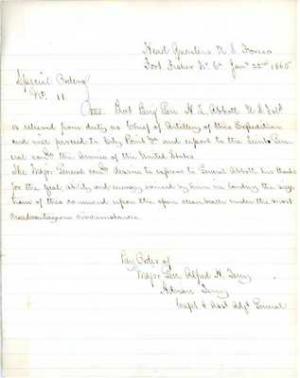 Head Quarters U.S. Forces
Fort Fisher N.C. Jany 22nd 1865
Special Orders
No. 11
Brvt Brig Gen H. L. Abbott U.S. Vols
is relieved from duty as Chief of Artillery of this Expedition
and will proceed to City Point Va and report to the Lieut. General
comdg the Armies of the United States
The Major General comdg desires to express to General Abbott his thanks
for the great ability and energy evinced by him in landing the
trains of this command upon the open ocean beach under the most
disadvantageous circumstances
By Order of
Major Gen Alfred H. Terry
Adrian Terry
Capt & Asst Adjt General